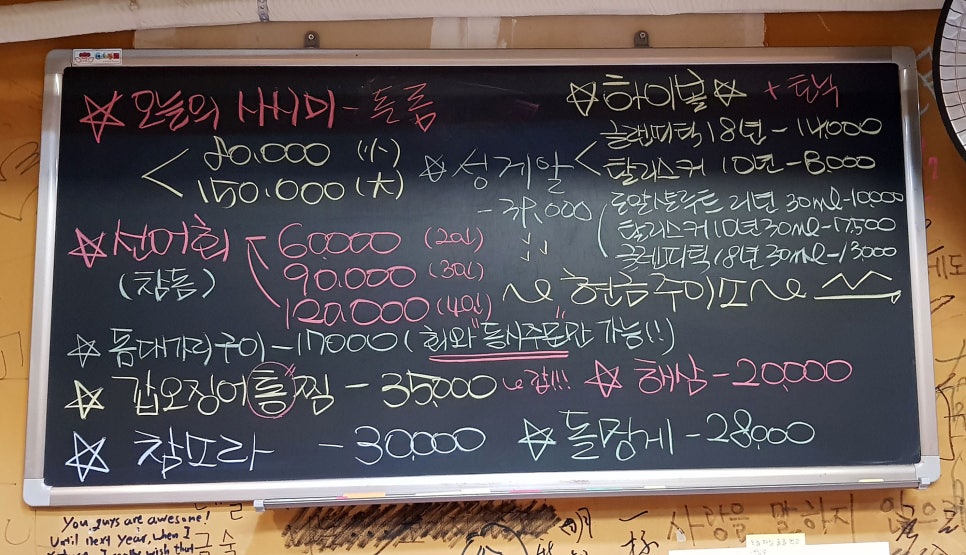 ☆오늘의 사시미-돌돔
80.000 (小)
150.000 (大)
☆성게알
-38,000
☆하이볼☆ +탄닉
글렌피딕 18년-14,000
탈리스커 10년-8,000
로얄살루트 21년 30ml-10,000
탈리스커 10년 30ml-7,500
글렌피딕 18년 30ml-13000
~현금주이쏘~
☆선어회
(참돔)
60.000 (2인)
90.000 (3인)
120.000 (4인)
☆돔대가리구이-17000("회와" 동시주문"만 가능!!)
☆갑오징어"통"찜-35,000
☆해삼-20,000
☆참소라 -30,000
☆돌멍게-28,000
You guys are awesome!
Until next year, when I
wish that
사랑을 말하지 않은